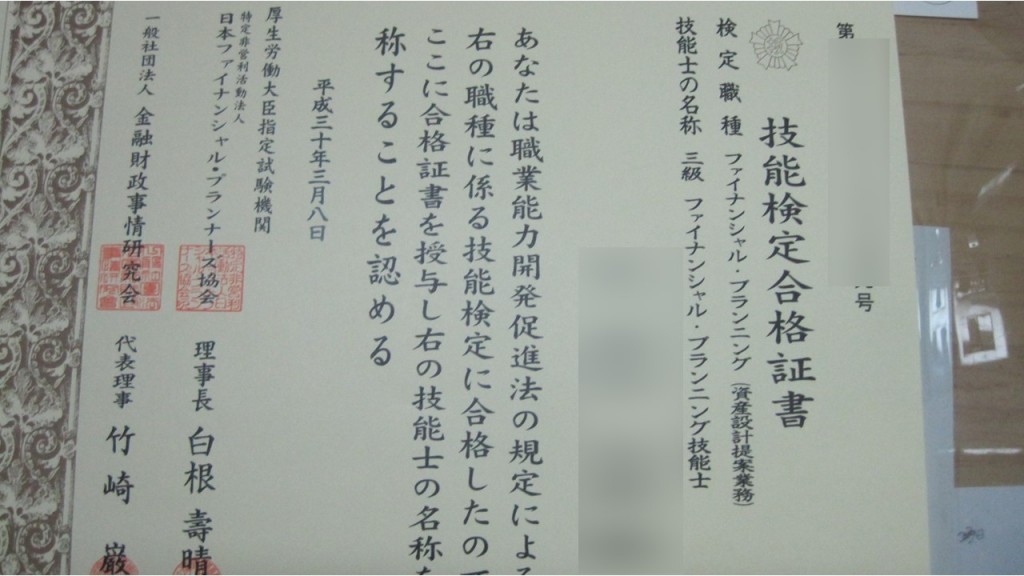 第
号
技能検定合格証書
検定職種 ファイナンシャル・プランニング（資産設計提案業務）
技能士の名称 三級 ファイナンシャル・プランニング技能士
あなたは職業能力開発促進法の規定による
右の職種に係る技能検定に合格したので
ここに合格証書を授与し右の技能士の名称を
称することを認める
平成三十年三月八日
厚生労働大臣指定試験機関
特定非営利活動法人
日本ファイナンシャル・プランナーズ協会 理事長 白根壽晴
一般社団法人 金融財政事情研究会 代表理事 竹崎巌